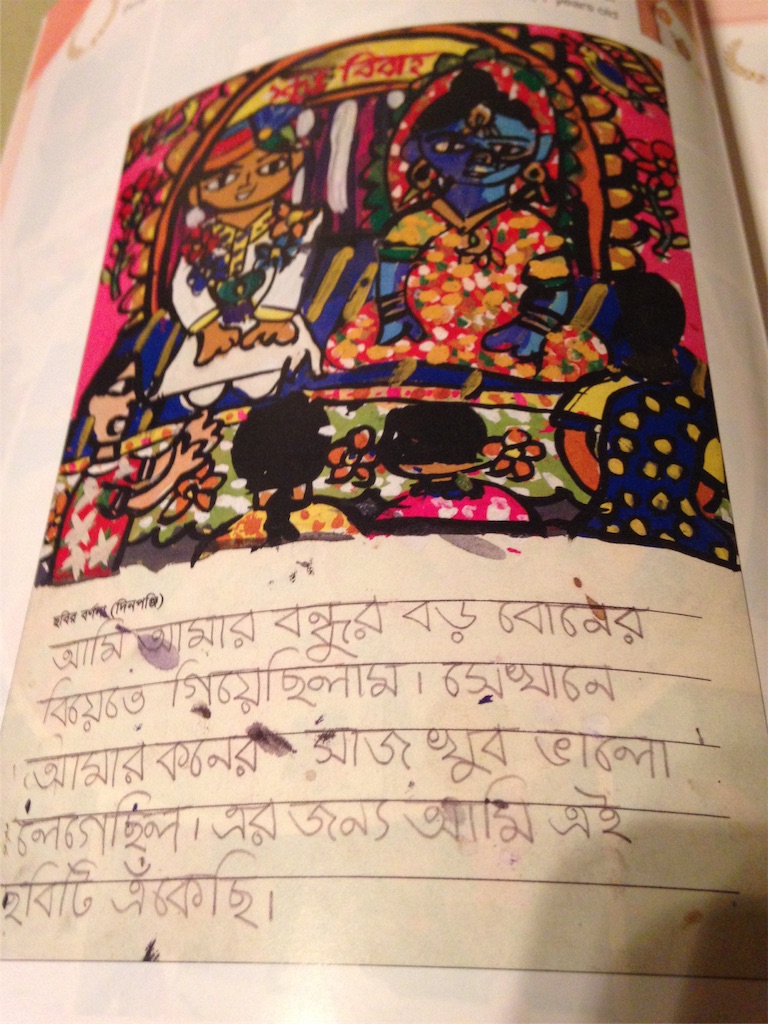 years old
শুভ বিবাহ
ছবির বর্ণনা (দিনপঞ্জি)
আমি আমার বন্ধুর বড় বোনের
বিয়েতে গিয়েছিলাম। সেখানে
আমার কনের সাজ খুব ভালো
লেগেছিল। এর জন্য আমি এই
ছবিটি এঁকেছি।